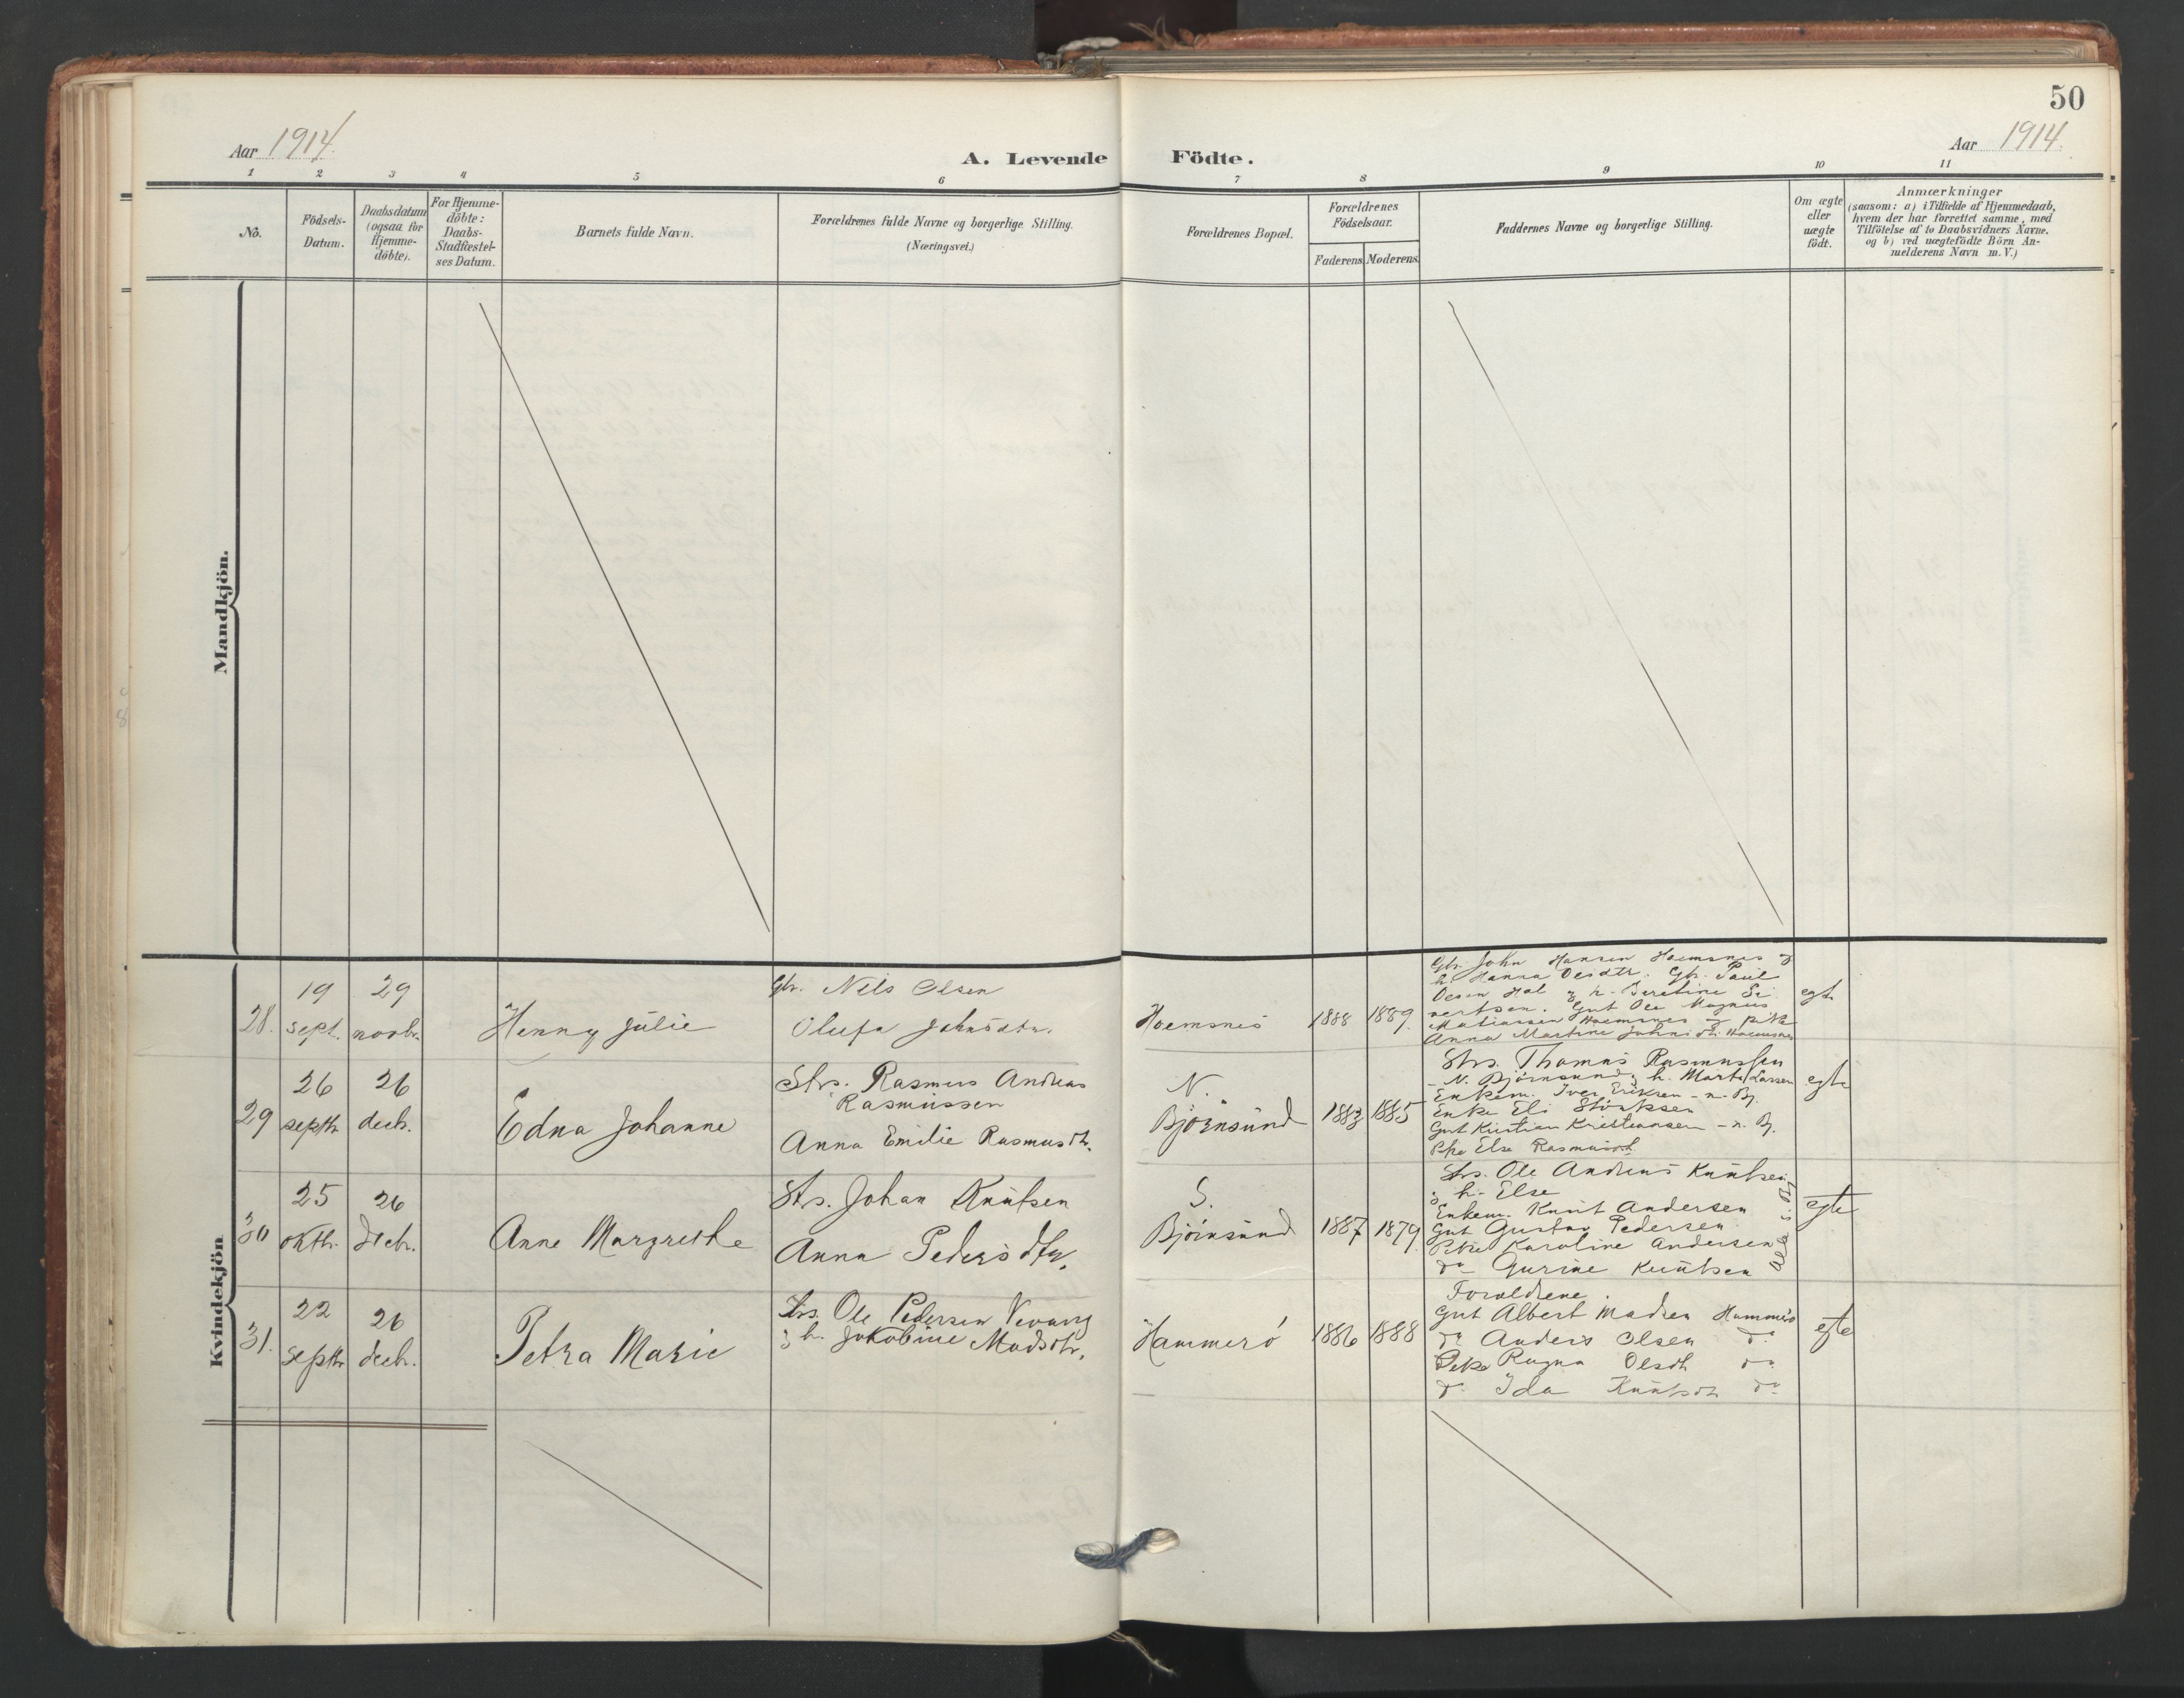 50
Aar 1914.
Aar 1914.
A. Levende Födte.
1 2 3 4 5 6 7 8 9 10 11
No.
Födsels-
Datum.
Daabsdatum
(ogsaa for
Hjemme-
döbte).
For Hjemme-
döbte:
Daabs-
Stadfæstel-
ses Datum.
Barnets fulde Navn.
Forældrenes fulde Navne og borgerlige Stilling.
(Næringsvei.)
Forældrenes Bopæl.
Forældrenes
Födselsaar.
Faderens. Moderens.
Faddernes Navne og borgerlige Stilling.
Om ægte
eller
uægte
födt.
Anmærkninger
(saasom: a) i Tilfælde af Hjemmedaab,
hvem der har forrettet samme, med
Tilföielse af to Daabsvidners Navne.
og b) ved uægtefödte Börn An-
melderens Navn m. V.)
Mandkjön.
Kvindekjön
28.
19
sept.
29
novbr.
Henny Julie
Gbr. Nils Olsen
Olufa Johnsdtr.
Hoemsnes
1888 1889.
Gbr. John Hansen Hoemsnes og
h. Hanna Olsdtr. Gbr. Paul
Olsen Hol og h.
Gut Ole Magnus
Matiassen Hoemsnes og pike
Anna Martine Johnsdtr. Hoemsnes
egte
29
26
septbr
26
decb.
Edna Johanne
Strs. Rasmus Andreas
Rasmussen
Anna Emilie Rasmusdtr.
N.
Björnsund
1883 1885
Strs. Thomas Rasmussen
N. Björnsund, h. Marta Larsen
Enkem. Iver Eriksen - n. Bj.
Enke Eli
Gut Kristian Kristiansen - n. Bj.
Pike Else Rasmusdt
egte
30
25
oktbr.
26
decbr.
Anne Margrethe
Strs. Johan Knutsen
Anna Pedersdtr.
S.
Björnsund
1887 1879.
Strs. Ole Andreas Knutsen
og h. Else
Enkem. Knut Andersen
Gut Gustav Pedersen
Pike Karoline Andersen
do Gurine Knutsen
Alle s. Bj.
egte
31.
22
septbr
26
decb.
Petra Marie
Strs. Ole Pedersen Vevang
og h. Jakobine Madsdtr.
Hammerö
1886 1888
Foreldrene.
Gut Albert Madsen Hammerö
do Anders Olsen do
Pike Ragna Olsdt do
do Ida Knutsdt do
egte